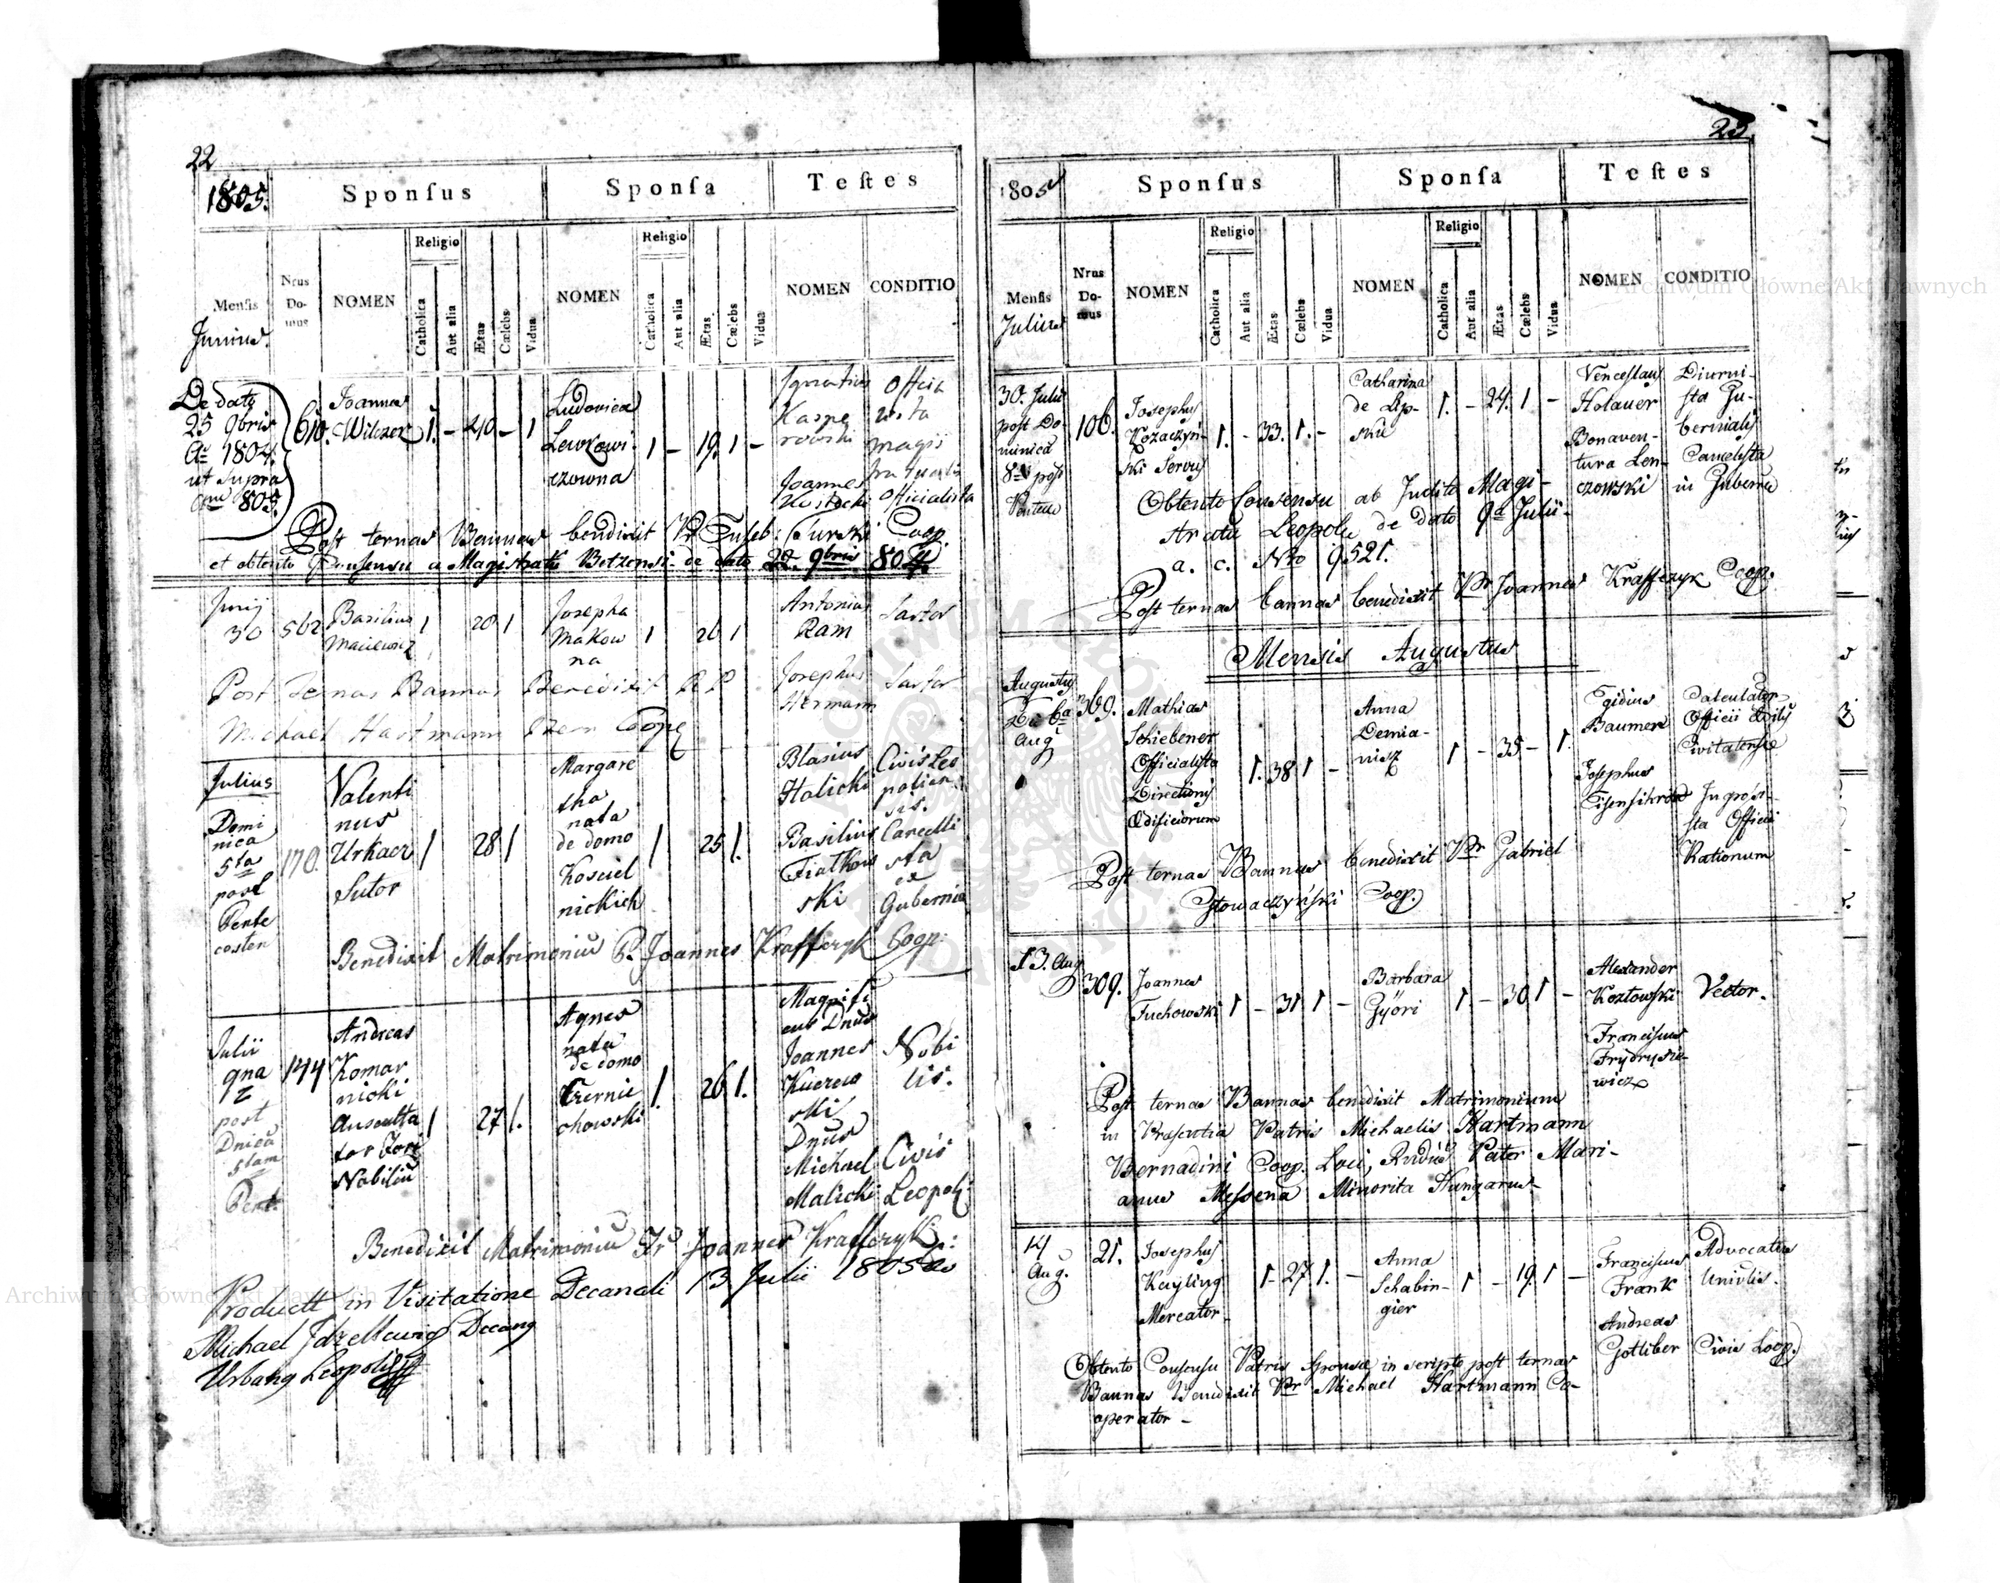 22
1805.
Sponſus
Sponſa
Teſtes
Menſis
Nrus
Do-
mus
NOMEN
Religio
Catholica
Aut alia
Ætas
Cælebs
Vidua
NOMEN
Religio
Catholica
Aut alia
Ætas
Cælebs
Vidua
NOMEN
CONDITIO
Junius.
De dato
25 9bris
Ai 1804.
ut supra
805
610.
Joannes
Wilczek
1. - 40 - 1
Ludovica
Lewkowi-
czowna
1 - 19. 1 -
Ignatius
Kaspe
rowski
Joannes
Kostecki
Officia
lista
magii
Officialista
Post ternas Bannas bendixit Pr Euseb: Turski Coop.
et obtento Consensu a Magistratu Betzensi de dato 22. 9bris 804.
Junij
30
562
Basilius
Maciewicz
1 20 1
Josepha
Makow
na
1 26 1
Antonius
Ram
Sartor
Josephus
Hermann
Sartor
Post Ternas Bannas Benedixit R P
Michael Hartmann Coope
Julius
Domi
nica
5ta
post
Pente
costen
170.
Valenti
nus
Urkacz
Sutor
1 28 1
Margare
tha
nata
de domo
Kosciel
nickich
1 25 1.
Blasius
Halicki
Civis Leo
polien
sis.
Basilius
Fiatkow
ski
Cancelli
sta
ex
Gubernio
Benedixit Matrimoniu P. Joannes Krafferyk Coop:
Julii
9na
12
post
Dnica
5tam
Pent.
144
Andreas
Komar
nicki
Ausculta
tor Fori
Nobiliu
1 27 1.
Agnes
nata
de domo
Czernie
chowski
1. 26 1.
Magnifi
cus Dnus
Joannes
Kuczew
ski
Nobi
lis.
Dnus
Michael
Malicki
Civis
Leopol:
Benedixit Matrimoniu Fr Joannes Krafferyk C:
Productt in Visitatione Decanali 13 Julii 1805
Michael Idzellewig Decang
Urbang Leopolis
23
1805
Sponſus
Sponſa
Teſtes
Menſis
Nrus
Do-
mus
NOMEN
Religio
Catholica
Aut alia
Ætas
Cælebs
Vidua
NOMEN
Religio
Catholica
Aut alia
Ætas
Cælebs
Vidua
NOMEN
CONDITIO
Julius
30. Julii
post Do-
minica
8a post
106.
Josephus
Kozaczyń-
ski Servus
1. - 33. 1. -
Catharina
de Lip-
skie
1. - 24. 1 -
Venceslaus
Holauer
Bonaven-
tura Len-
czowski
Diurni-
sta Gu-
bernialis
Cancelista
in Gubernio
Obtento Consensu ab Judito Magi-
stratu Leopole de dato 9a Julii
a. c. Nro 9521.
Post ternas bannas benedixit Pr Joannes Krafferyk Coop.
Mensis Augustus
Augustus
Die 6a
Augi
369.
Mathias
Schiebener
Officialista
Directionis
Ædificiorum
1. 38 1 -
Anna
Demia-
nicz
1 - 35 - 1.
Egidius
Baumert
Calculator
Officii Ædilis
Civitatensis
Josephus
Ingrosi-
sta Officii
Rationum
Post ternas Bannas benedixit Pr Gabriel
Głowaczyński Coop.
13. Aug
309.
Joannes
Tuchowski
1 - 31 1 -
Barbara
Györi
1 - 30 1 -
Alexander
Kozłowski
Vector.
Franciscus
Frydrysie-
wicz
Post ternas Bannas benedixit Matrimonium
in Præsentia Patris Michaelis Hartmann
Bernadini Coop. Loci, Rndus Pater Mari-
anus Messena Minorita Hungarus
14
Aug.
21.
Josephus
Kayling
Mercator
1 - 27 1. -
Anna
Schabin-
gier
1 - 19. 1 -
Franciscus
Frank
Advocatus
Univlis.
Andreas
Gottliber
Civis Leop.
Obtento Consensu Patris Sponsa in scripto post ternas
Bannas Benedixit Pr Michael Hartmann Co-
operator -
Archiwum Główne Akt Dawnych
Archiwum Główne Akt Dawnych